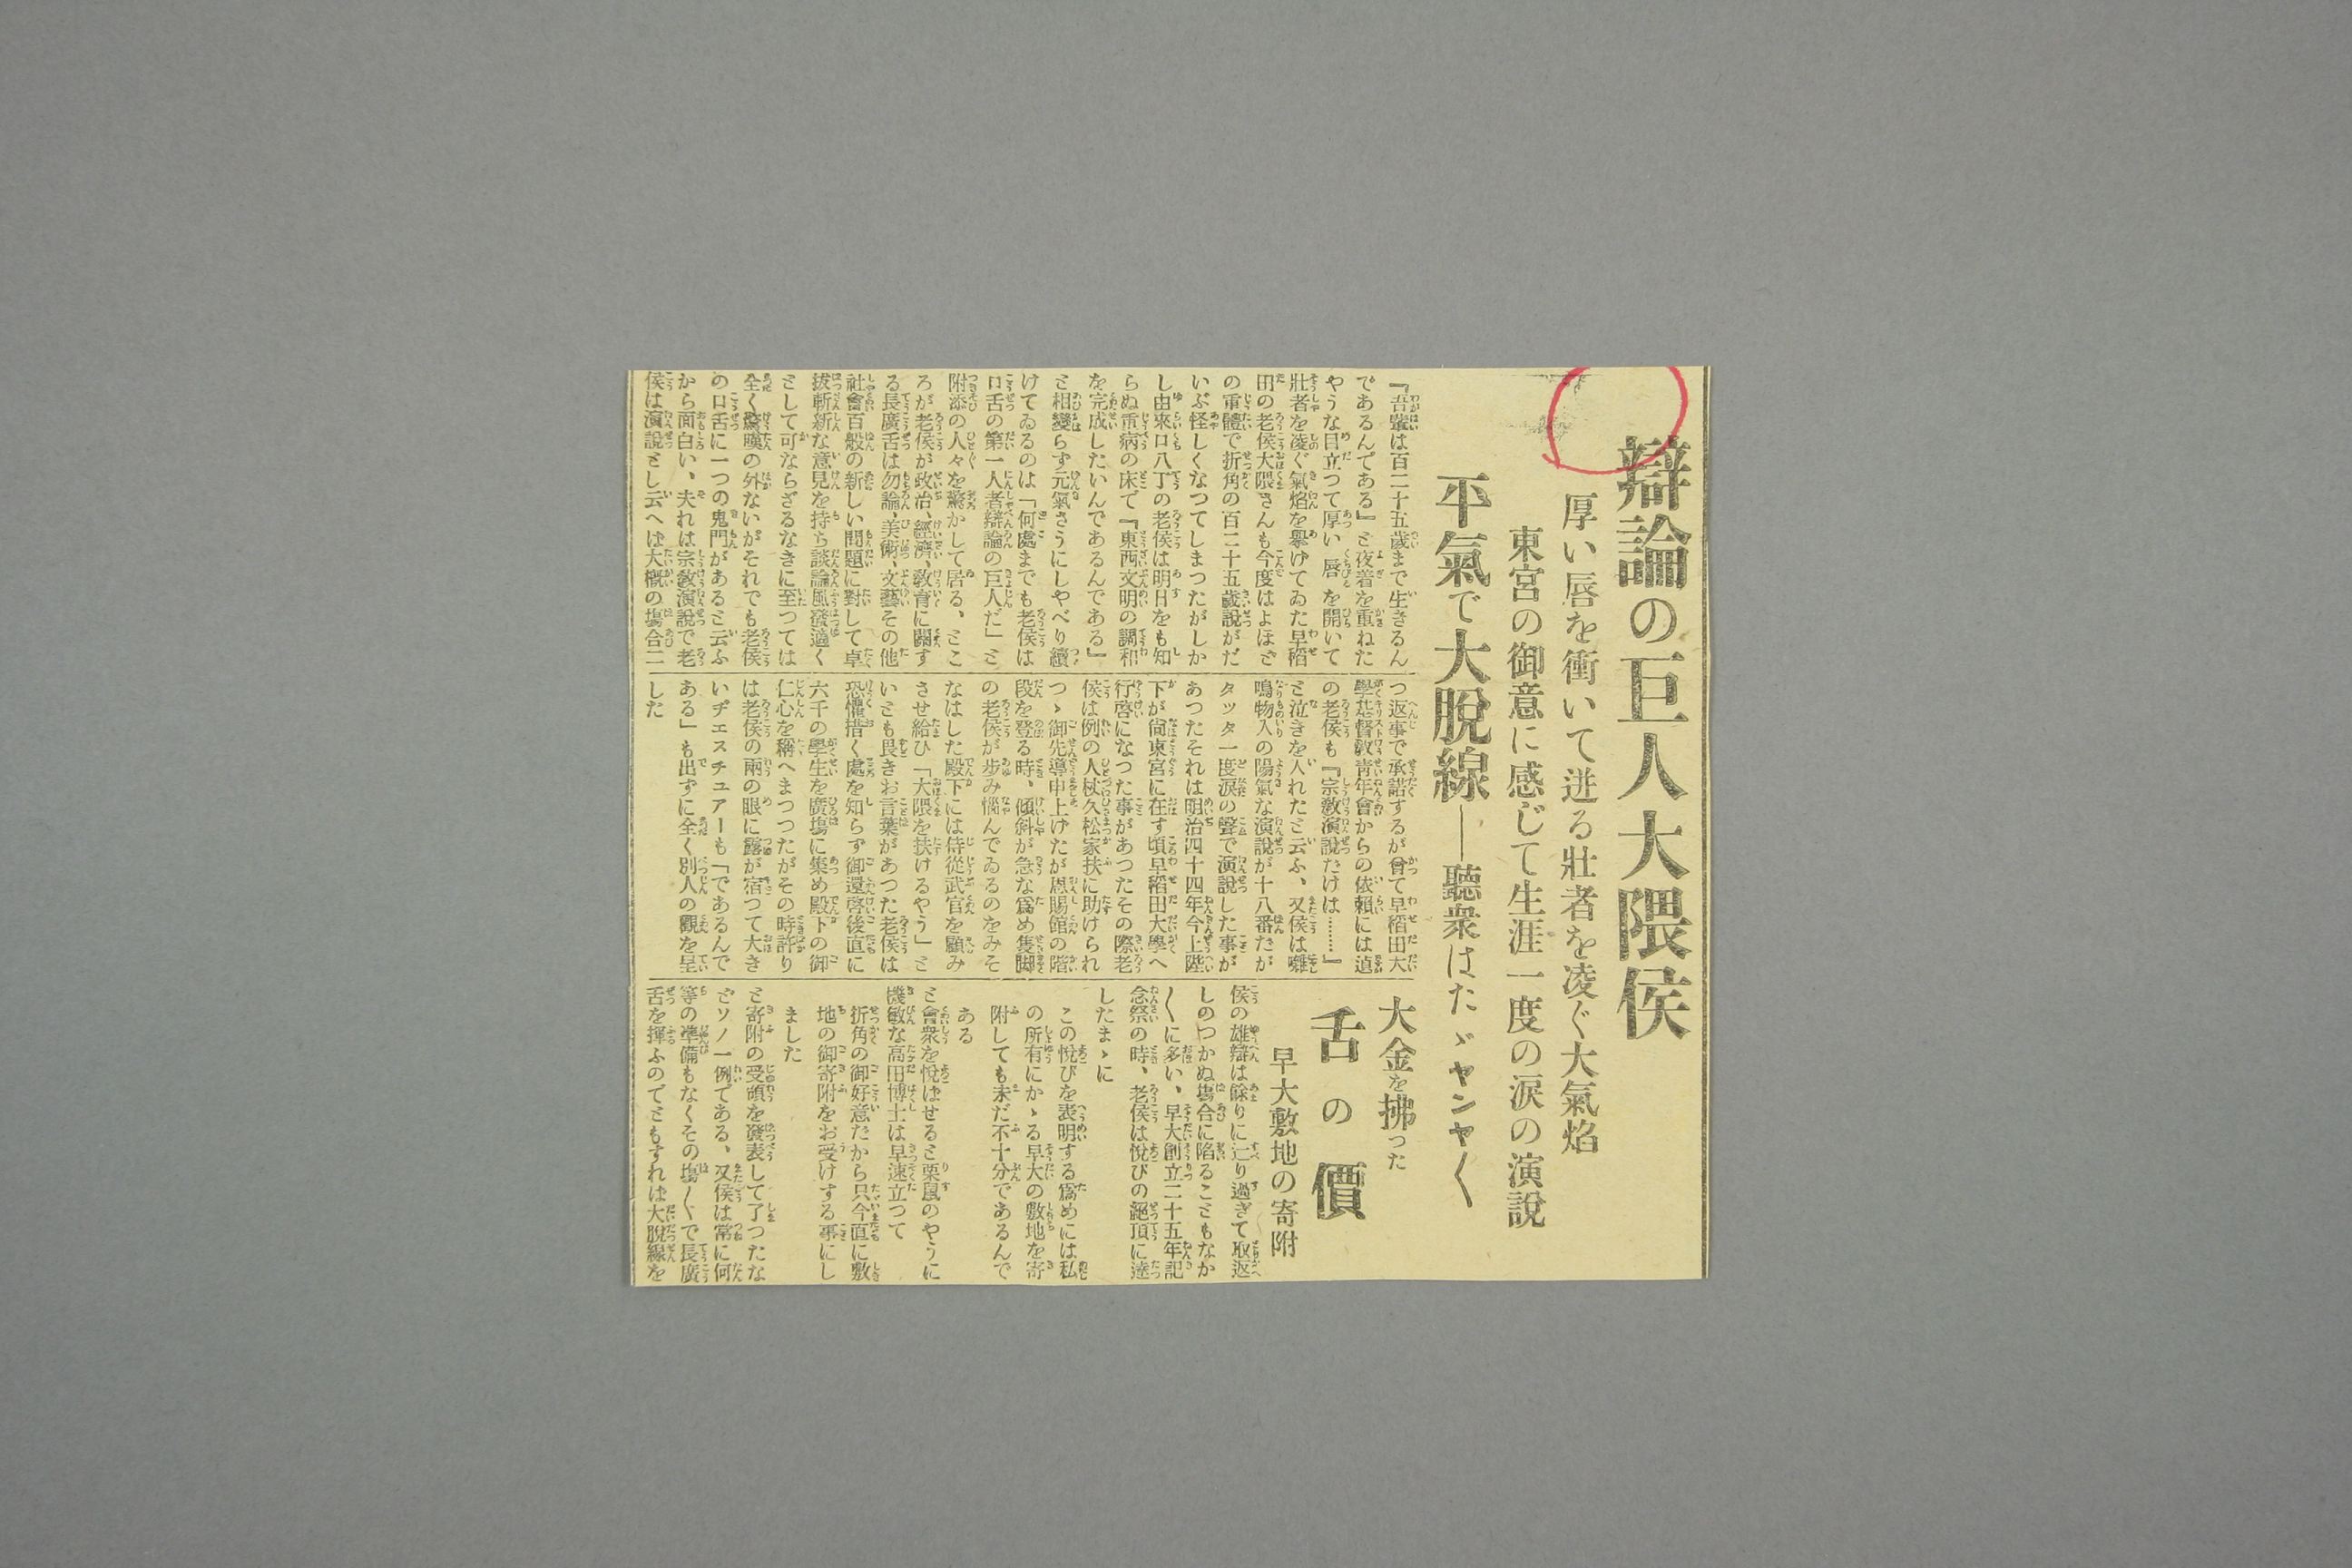 辯論の巨人大隈侯
厚い唇を衝いて迸る壯者を凌ぐ大氣焰
東宮の御意に感じて生涯一度の涙の演説
平氣で大脫線―聽衆はたゞヤンヤ〱
『吾輩は百二十五歲まで生きるん
であるんである』と夜着を重ねた
やうな目立つて厚い唇を開いて
壯者を凌ぐ氣焰を擧げてゐた早稻
田の老侯大隈さんも今度はよほど
の重體で折角の百二十五歲說がだ
いぶ怪しくなつてしまつたがしか
し由來口八丁の老侯は明日をも知
らぬ重病の床で『東西文明の調和
を完成したいんであるんである』
と相變らず元氣さうにしやべり續
けてゐるのは「何處までも老侯は
口舌の第一人者辯論の巨人だ」と
附添の人々を驚かして居る、とこ
ろが老侯が政治、經濟、敎育に關す
る長廣舌は勿論、美術、文藝その他
社會百般の新しい問題に對して卓
拔斬新な意見を持ち談論風發適く
として可ならざるなきに至つては
全く驚嘆の外ないがそれでも老侯
の口舌に一つの鬼門があると云ふ
から面白い、夫れは宗敎演說で老
侯は演說とし云へば大槪の塲合二
つ返事で承諾するが曾て早稻田大
學基督敎靑年會からの依賴には遉
の老侯も『宗敎演說だけは……』
と泣きを入れたと云ふ、又侯は囃
鳴物入の陽氣な演說が十八番だが
タッター度淚の聲で演說した事が
あつたそれは明治四十四年今上陛
下が尙東宮に在す頃早稻田大學へ
行啓になつた事があつたその際老
侯は例の人杖久松家扶に助けられ
つゝ御先導申上げたが恩賜館の階
段を登る時、傾斜が急な爲め隻脚
の老侯が步み惱んでゐるのをみそ
なはした殿下には侍從武官を顧み
させ給ひ「大隈を扶けるやう」と
いとも畏きお言葉があつた老侯は
恐懼措く處を知らず御還啓後直に
六千の學生を廣塲に集め殿下の御
仁心を稱へまつつたがその時許り
は老侯の兩の眼に露が宿つて大き
いヂエスチュアーも「であるんで
ある」も出ずに全く別人の觀を呈
した
大金を拂つた
舌の價
早大敷地の寄附
侯の雄辯は餘りに辷り過ぎて取返
しのつかぬ塲合に陷ることもなか
〱に多い、早大創立二十五年記
念祭の時、老侯は悅びの絕頂に達
したまゝに
この悅びを表明する爲めには私
の所有にかゝる早大の敷地を寄
附しても未だ不十分であるんで
ある
と會衆を悅ばせると栗鼠のやうに
機敏な高田博士は早速立つて
折角の御好意だから只今直に敷
地の御寄附をお受けする事にし
ました
と寄附の受領を發表して了つたな
どソノ一例である、又侯は常に何
等の準備もなくその塲〱で長廣
舌を揮ふのでともすれば大脫線を